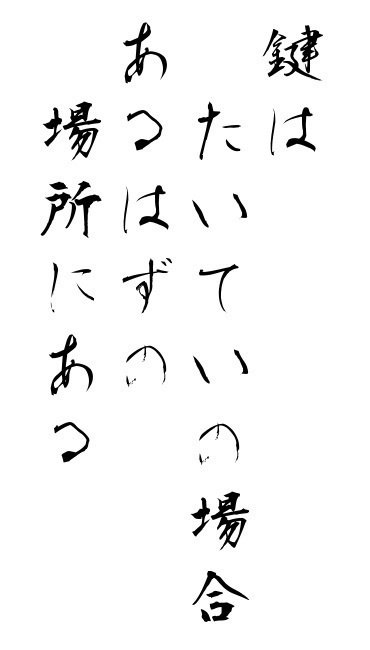 鍵は
たいていの場合
あるはずの
場所にある